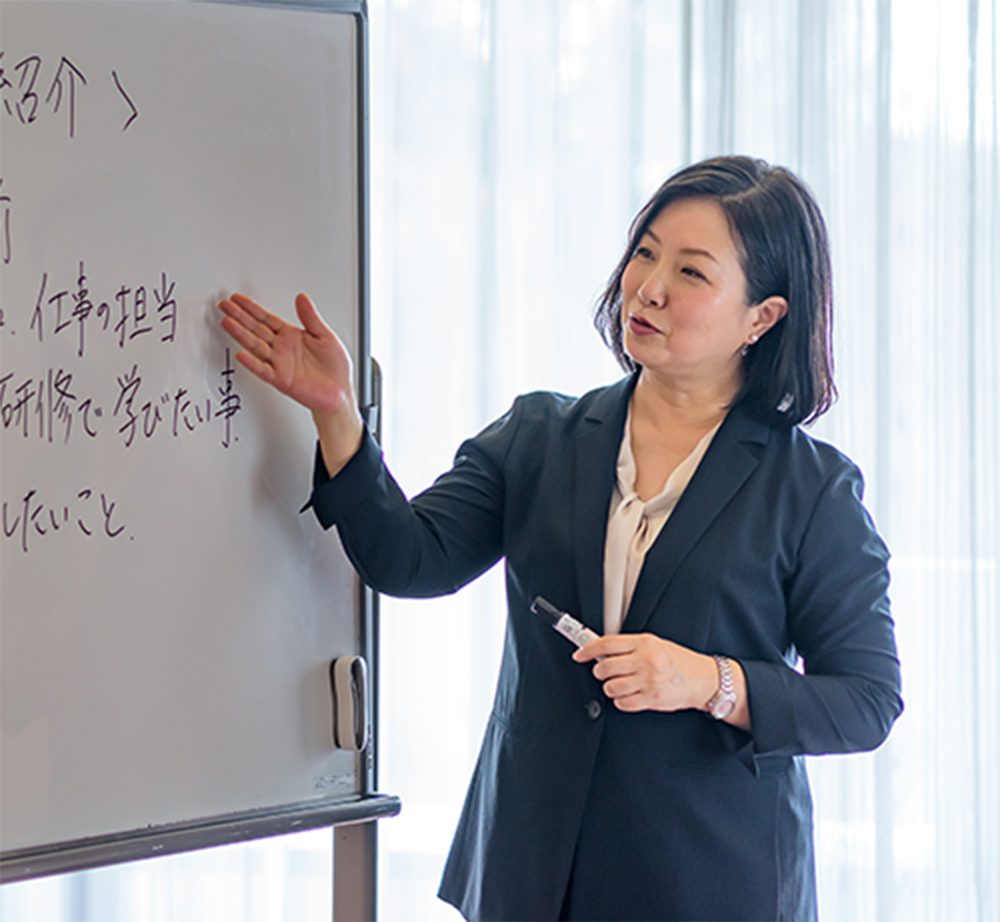 紹介〉
前
仕事の担当
研修で学びたい事.
したいこと.